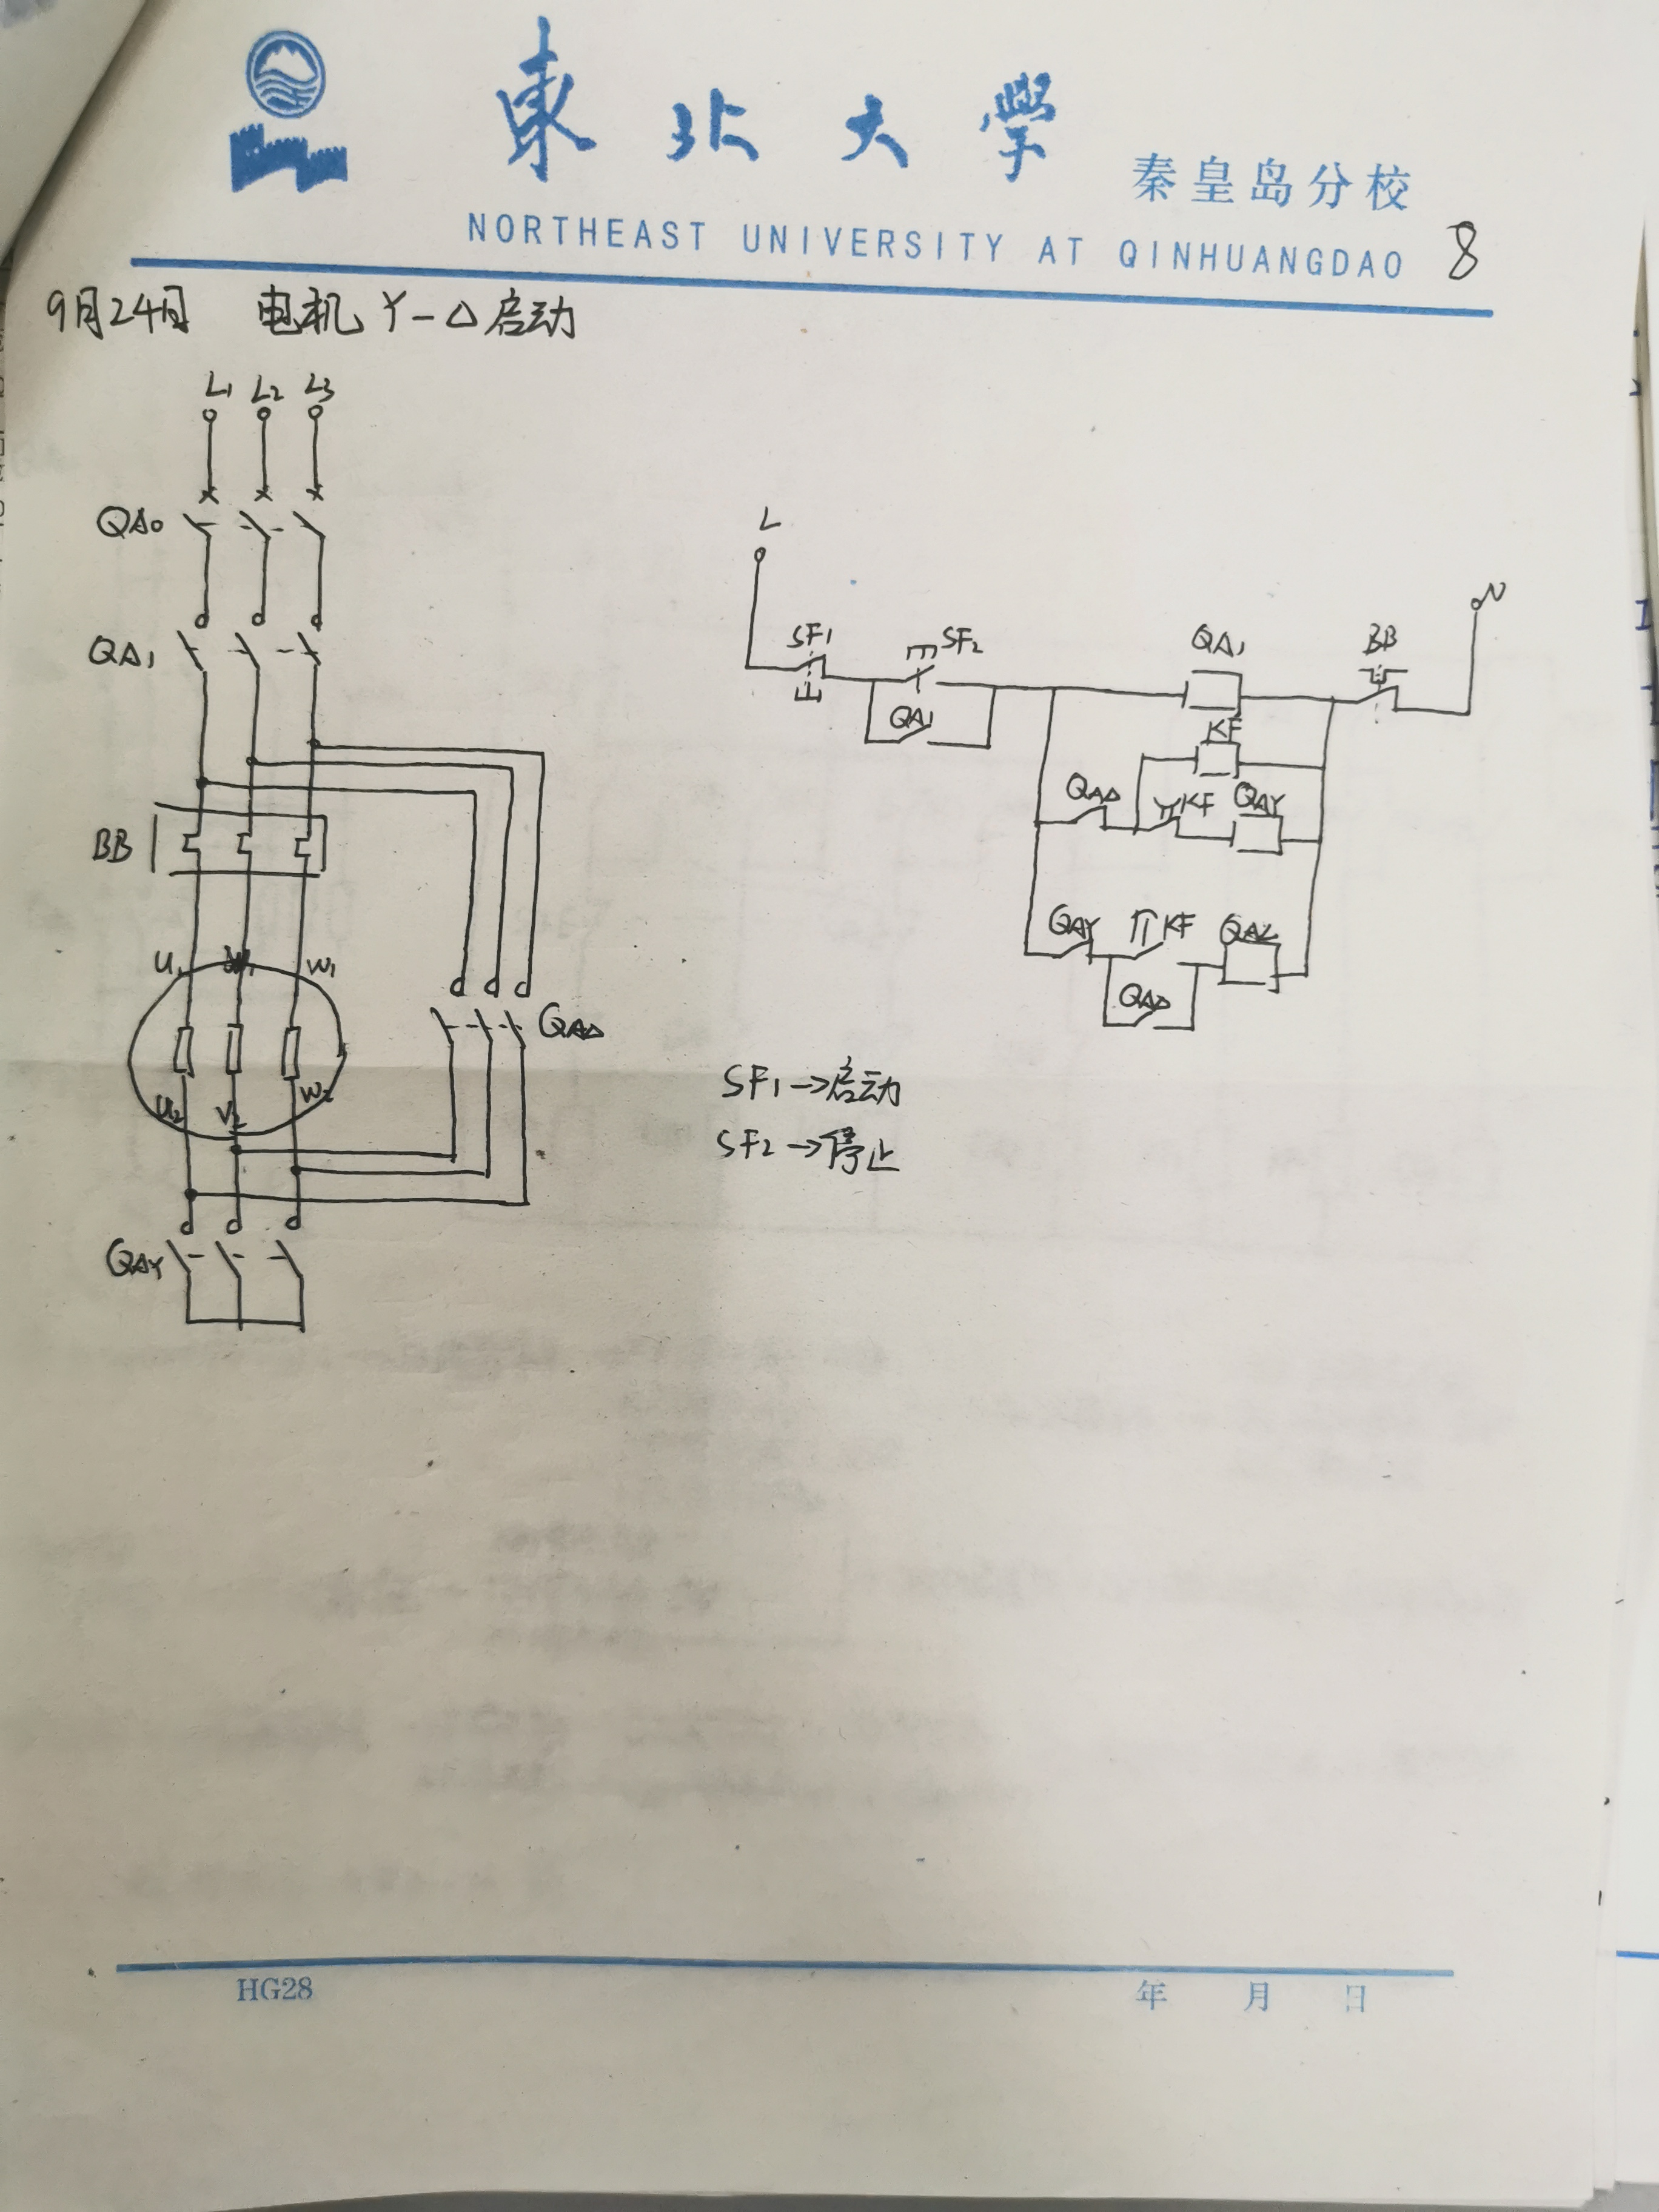 東北大學 秦皇岛分校
NORTHEAST UNIVERSITY AT QINHUANGDAO 8
9月24日 电机 Y-△启动
L1 L2 L3
QA0
QA1
BB
U1 W1
U2 V2 W2
QA△
QAY
L
N
SF1
SF2
QA1
QA1
BB
KF
QA△
KF
QAY
QAY
KF
QA△
SF1→启动
SF2→停止
HG28 年 月 日